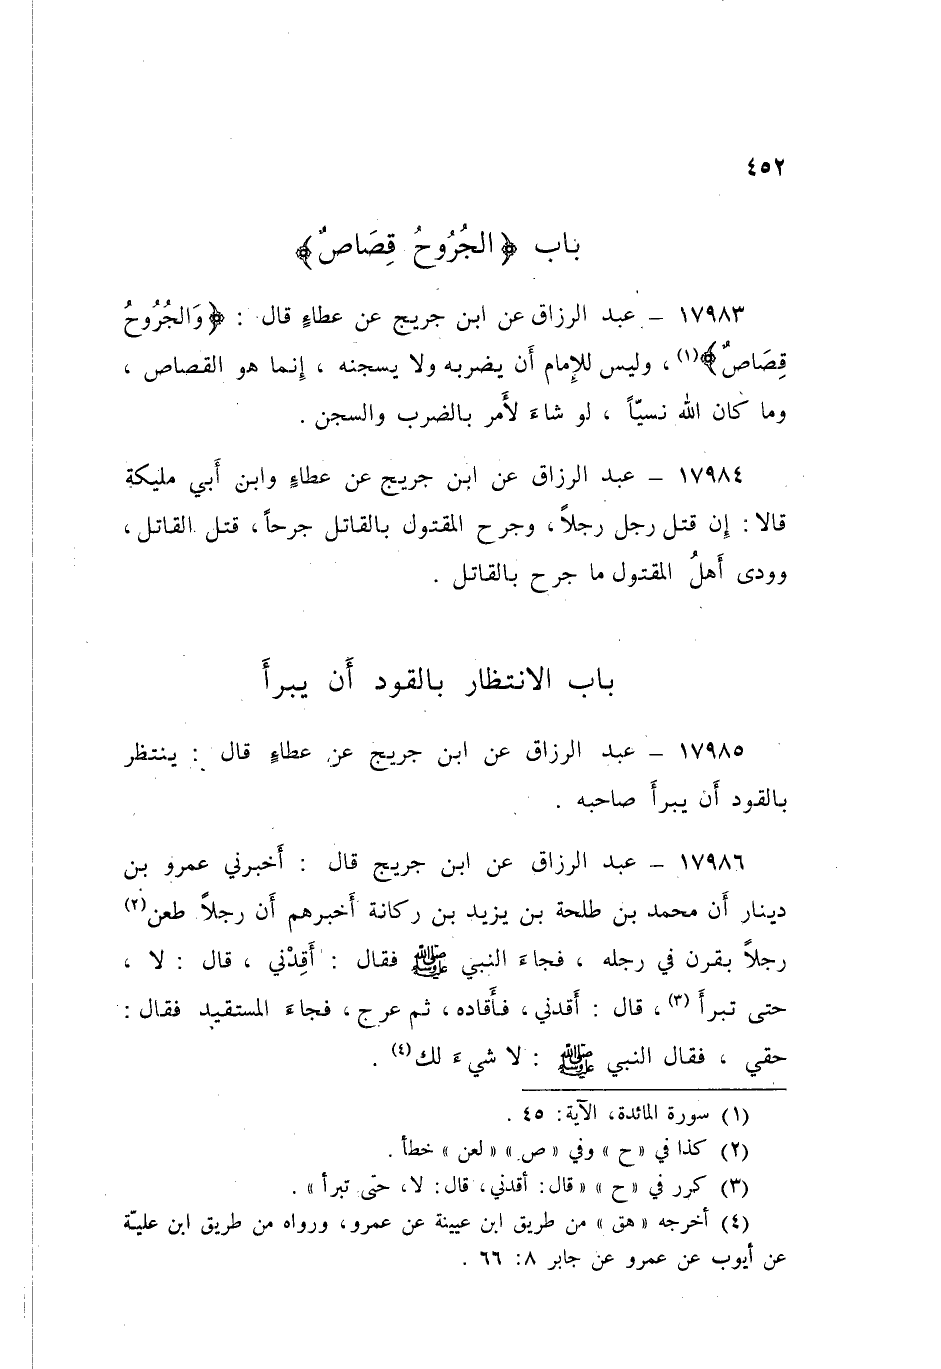 ٤٥٢
باب ﴿الجُرُوحُ قِصَاصٌ﴾
١٧٩٨٣ – عبد الرزاق عن ابن جريج عن عطاءٍ قال : ﴿وَالجُرُوحُ
قِصَاصٌ﴾(١)، وليس للإمام أَن يضربه ولا يسجنه ، إنما هو القصاص ،
وما كان الله نسيّاً ، لو شاءَ لأَمر بالضرب والسجن .
١٧٩٨٤ – عبد الرزاق عن ابن جريج عن عطاءٍ وابن أَبي مليكة
قالا : إن قتل رجل رجلاً، وجرح المقتول بالقاتل جرحاً، قتل القاتل ،
وودى أَهلُ المقتول ما جرح بالقاتل .
باب الانتظار بالقود أَن يبرأَ
١٧٩٨٥ – عبد الرزاق عن ابن جريج عن عطاءٍ قال : ينتظر
بالقود أَن يبرأَ صاحبه .
١٧٩٨٦ – عبد الرزاق عن ابن جريج قال : أَخبرني عمرو بن
دينار أَن محمد بن طلحة بن يزيد بن ركانة أَخبرهم أَن رجلاً طعن(٢)
رجلاً بقرن في رجله ، فجاءَ النبي ﷺ فقال : أَقِدْني ، قال : لا ،
حتى تبرأَ (٣)، قال : أَقدني، فأَقاده، ثم عرج، فجاءَ المستقيد فقال :
حقي ، فقال النبي ﷺ : لا شيءَ لك(٤) .
(١) سورة المائدة، الآية: ٤٥ .
(٢) كذا في «ح» وفي «ص» «لعن» خطأ .
(٣) كرر في «ح» «قال: أقدني، قال: لا، حتى تبرأ» .
(٤) أخرجه «هق» من طريق ابن عيينة عن عمرو، ورواه من طريق ابن عليّة
عن أيوب عن عمرو عن جابر ٨: ٦٦ .